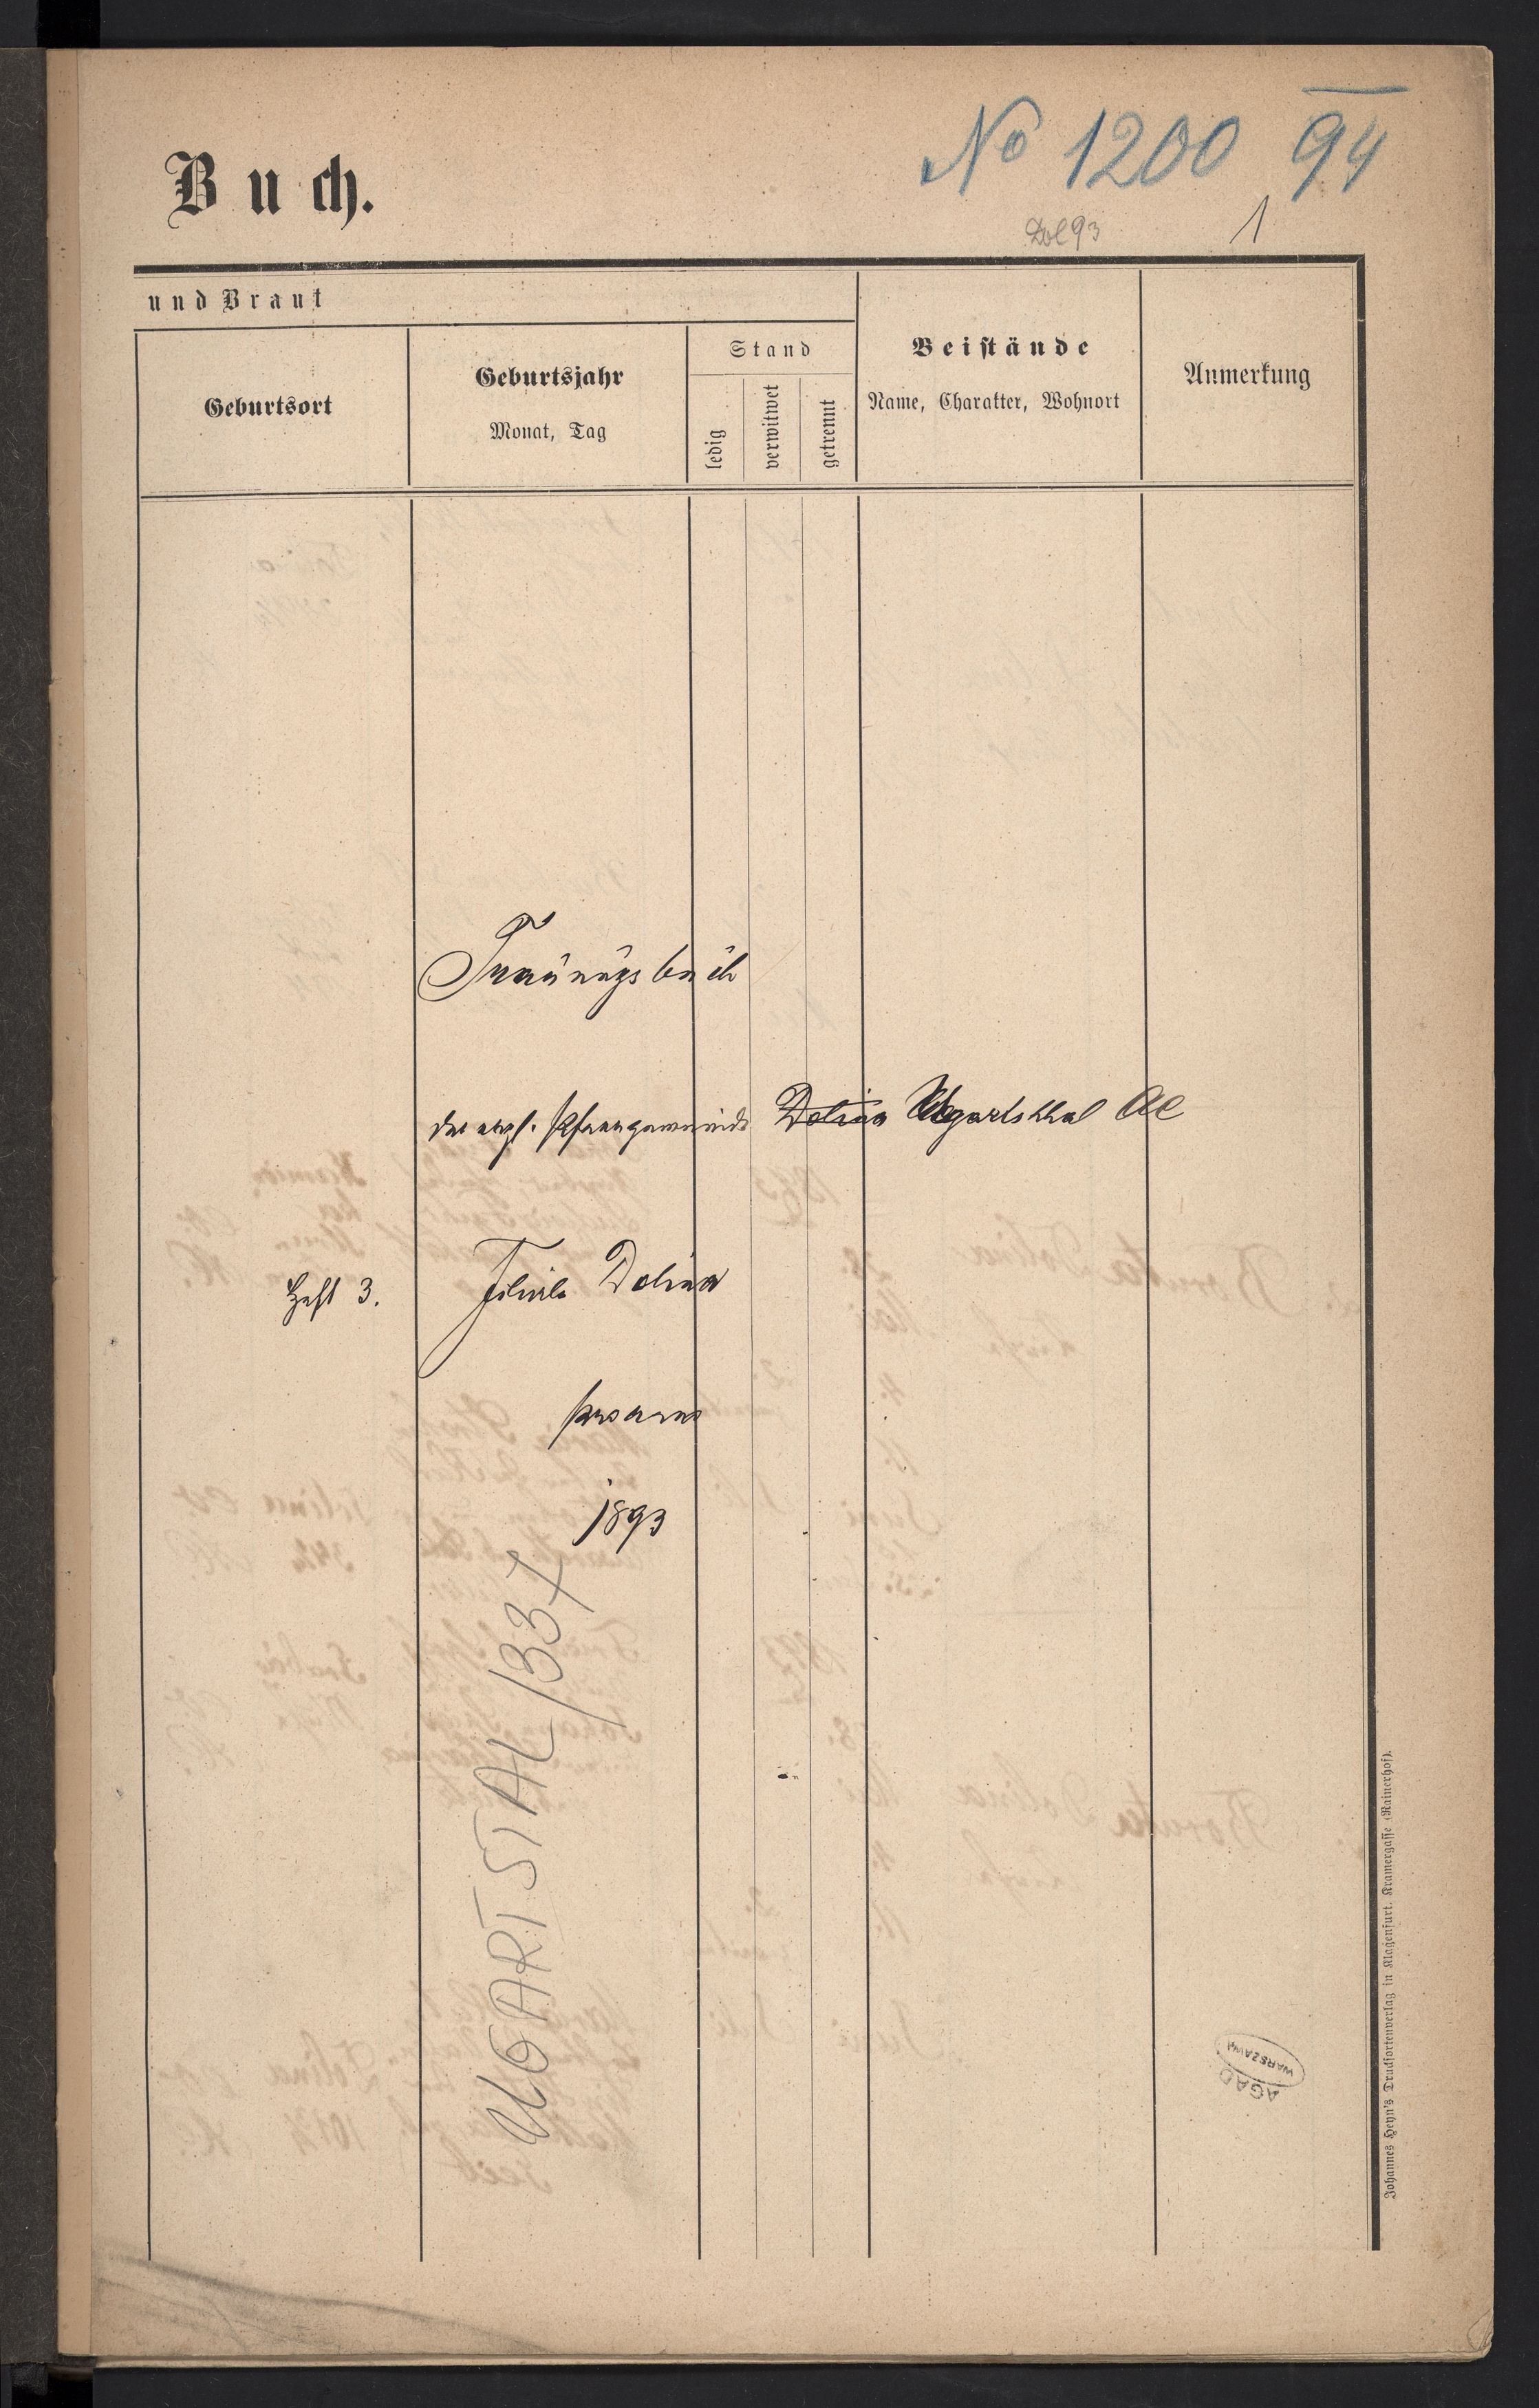 No 1200 94
Buch.
Dol 93 1
und Braut
Geburtsort
Geburtsjahr
Monat, Tag
Stand
ledig
verwitwet
getrennt
Beistände
Name, Charakter, Wohnort
Anmerkung
Trauungsbuch
der evgl. Pfarrgemeinde Dolina Ugartsthal AC
Heft 3. Filiale Dolina
pro anno
1893
UGARTSTAL/1337
AGAD
WARSZAWA
Johannes Heyn's Drucksortenverlag in Klagenfurt. Kramergasse (Rainerhof).